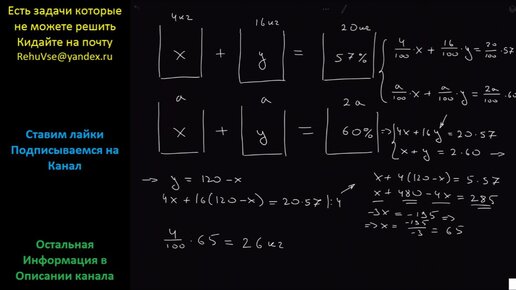 Есть задачи которые
не можете решить
Кидайте на почту
RehuVse@yandex.ru
Ставим лайки
Подписываемся на
Канал
Остальная
Информация в
Описании канала
4кг 16кг 20кг
x + y = 57%
4/100 · x + 16/100 · y = 20/100 · 57
a a 2a
x + y = 60%
a/100 · x + a/100 · y = 2a/100 · 60
=> 4x + 16y = 20·57
x + y = 2·60 →
→ y = 120 - x
4x + 16(120 - x) = 20·57 |:4
x + 4(120 - x) = 5·57
x + 480 - 4x = 285
-3x = -195 =>
=> x = -195/-3 = 65
4/100 · 65 = 26кг